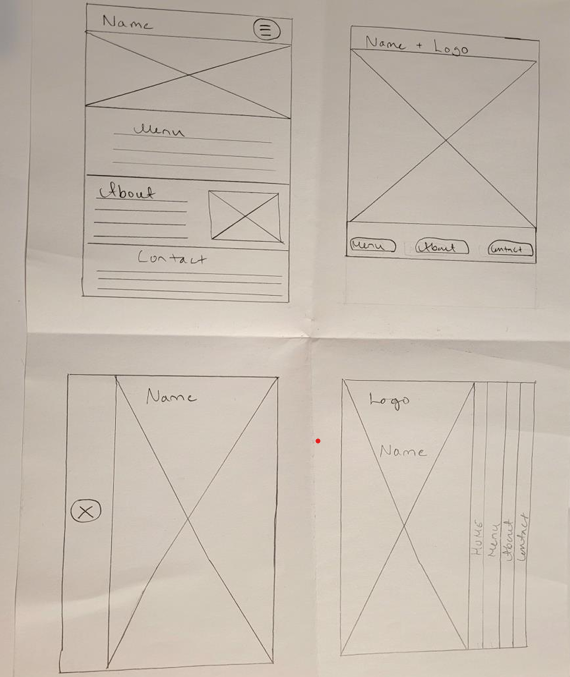 Name
Menu
About
Contact
Name + Logo
Menu About Contact
X
Name
Logo
Name
HOME
Menu
About
Contact